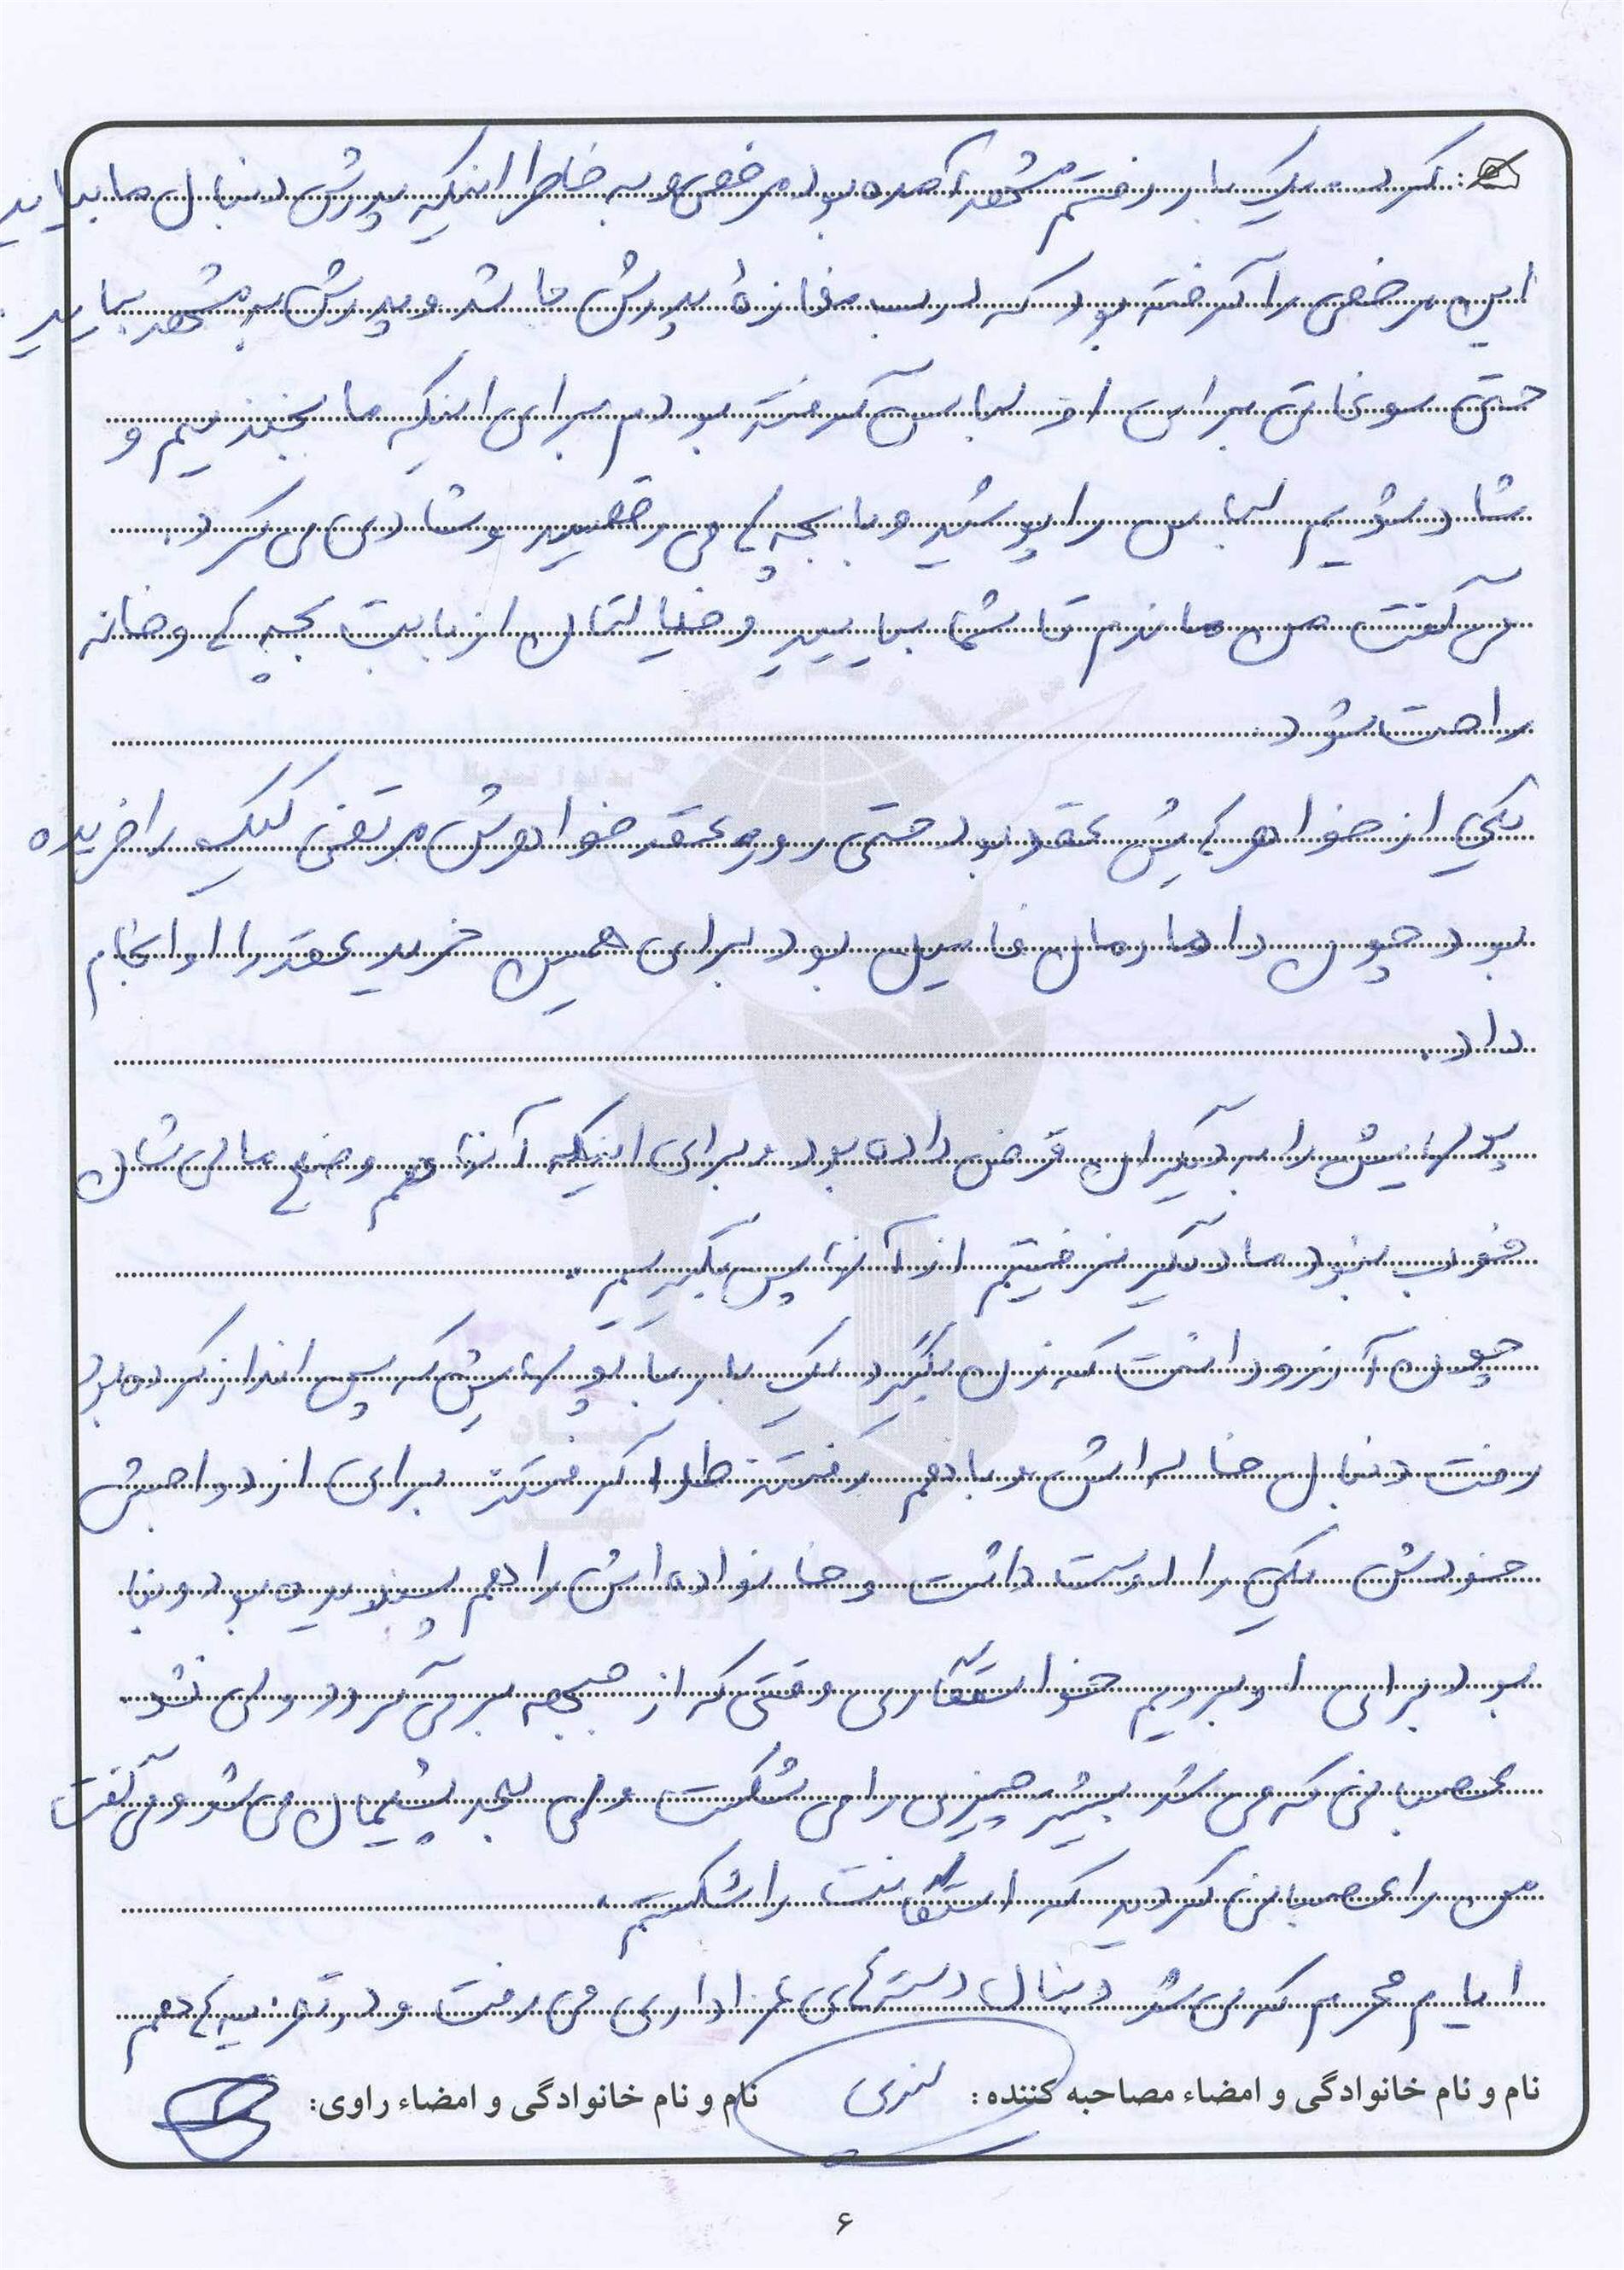 کرد. یک بار رفتم مشهد آمده بود مرخصی و به خاطر اینکه پدرش دنبال ما بیاید
این مرخصی را گرفته بود که درب مغازهٔ پدرش باشد و پدرش به مشهد بیاید.
حتی سوغاتی برای او لباس گرفته بودم برای اینکه ما بخندیم و
شاد شویم لباس را پوشید و با بچه ها می رقصید و شادی می کرد.
می گفت من ماندم تا شما بیایید و خیالتان از بابت بچه ها و خانه
راحت شود.
یکی از خواهرهایش عقد بود حتی روز عقد خواهرش مرتضی کیک را خریده
بود چون دامادمان فامیل بود برای همین خرید عقد را او انجام
داد.
پولهایش را به دیگران قرض داده بود و برای اینکه آنها هم وضع مالی شان
خوب نبود ما دیگر نرفتیم از آنها پس بگیریم.
چون آرزو داشت که زن بگیرد یک بار با پولهایش که پس انداز کرده بود
رفت دنبال خاله اش و با هم رفتند طلا گرفتند برای ازدواجش
خودش یکی را دوست داشت و خانواده اش را هم پسندیده بود و بنا
بود برای او برویم خواستگاری وقتی که از جبهه برمی گردد ولی نشد.
عصبانی که می شد بیشتر چیزی را می شکست ولی بعد پشیمان می شد و می گفت
من را عصبانی کردید که استکانت را شکستم.
ایام محرم که می شد دنبال دسته های عزاداری می رفت و در تعزیه ها هم
نام و نام خانوادگی و امضاء مصاحبه کننده: نام و نام خانوادگی و امضاء راوی:
۶